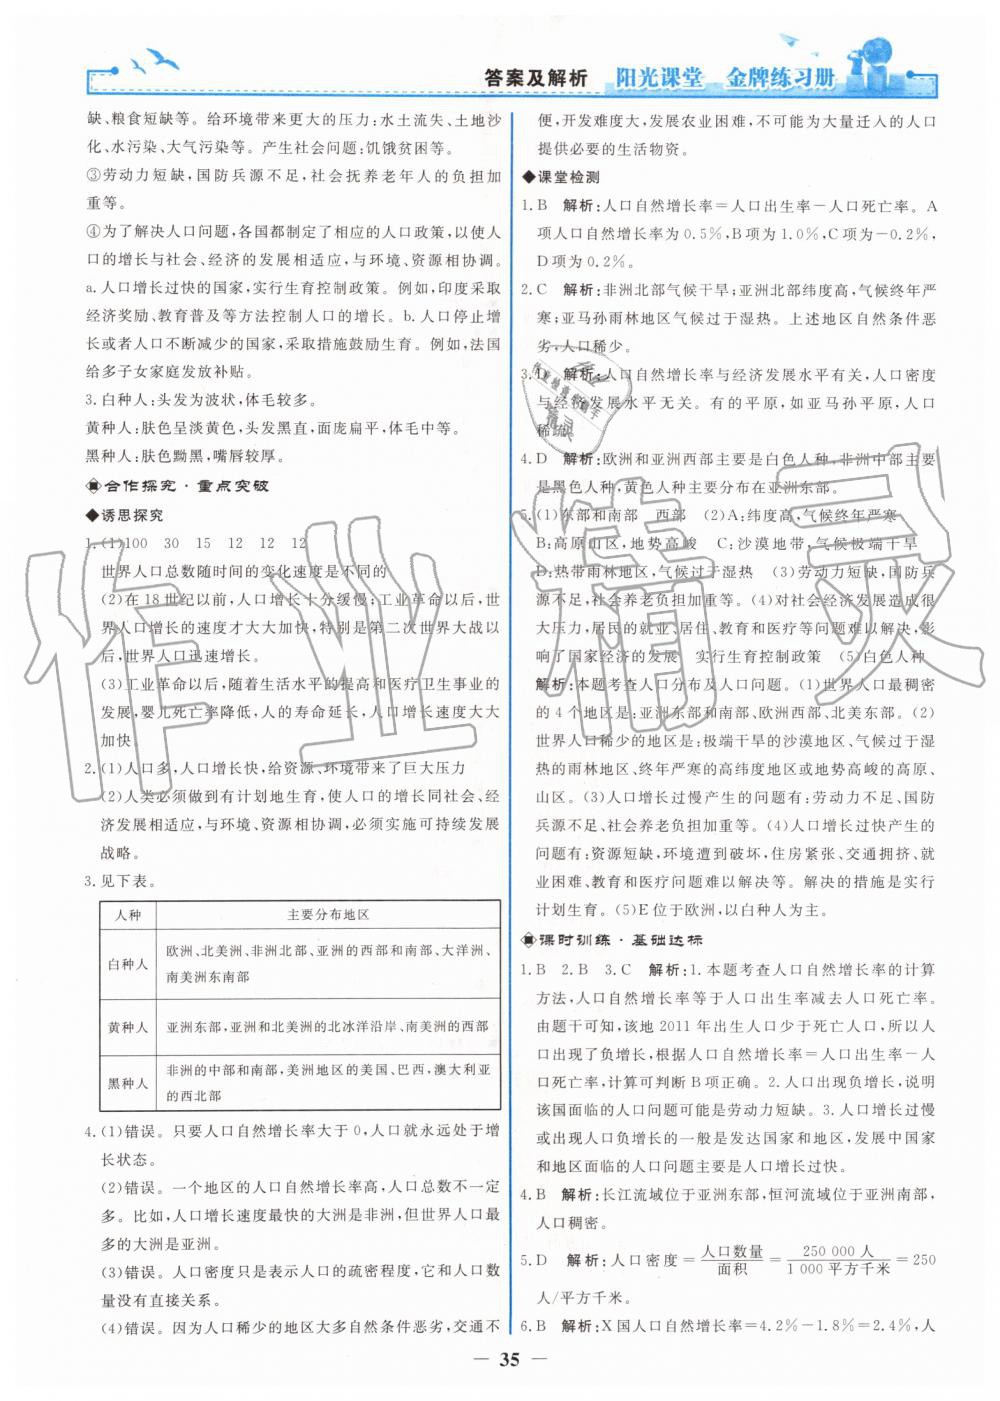 答案及解析 阳光课堂 金牌练习册
缺、粮食短缺等。给环境带来更大的压力:水土流失、土地沙
化、水污染、大气污染等。产生社会问题:饥饿贫困等。
③劳动力短缺,国防兵源不足,社会抚养老年人的负担加
重等。
④为了解决人口问题,各国都制定了相应的人口政策,以使人
口的增长与社会、经济的发展相适应,与环境、资源相协调。
a.人口增长过快的国家,实行生育控制政策。例如,印度采取
经济奖励、教育普及等方法控制人口的增长。b.人口停止增
长或者人口不断减少的国家,采取措施鼓励生育。例如,法国
给多子女家庭发放补贴。
3.白种人:头发为波状,体毛较多。
黄种人:肤色呈淡黄色,头发黑直,面庞扁平,体毛中等。
黑种人:肤色黝黑,嘴唇较厚。
合作探究·重点突破
◆诱思探究
1.(1)100 30 15 12 12 12
世界人口总数随时间的变化速度是不同的
(2)在18世纪以前,人口增长十分缓慢;工业革命以后,世
界人口增长的速度才大大加快,特别是第二次世界大战以
后,世界人口迅速增长。
(3)工业革命以后,随着生活水平的提高和医疗卫生事业的
发展,婴儿死亡率降低,人的寿命延长,人口增长速度大大
加快。
2.(1)人口多,人口增长快,给资源、环境带来了巨大压力
(2)人类必须做到有计划地生育,使人口的增长同社会、经
济发展相适应,与环境、资源相协调,必须实施可持续发展
战略。
3.见下表。
人种 主要分布地区
白种人 欧洲、北美洲、非洲北部、亚洲的西部和南部、大洋洲、
南美洲东南部
黄种人 亚洲东部,亚洲和北美洲的北冰洋沿岸、南美洲的西部
黑种人 非洲的中部和南部,美洲地区的美国、巴西,澳大利亚
的西北部
4.(1)错误。只要人口自然增长率大于0,人口就永远处于增
长状态。
(2)错误。一个地区的人口自然增长率高,人口总数不一定
多。比如,人口增长速度最快的大洲是非洲,但世界人口最
多的大洲是亚洲。
(3)错误。人口密度只是表示人口的疏密程度,它和人口数
量没有直接关系。
(4)错误。因为人口稀少的地区大多自然条件恶劣,交通不
便,开发难度大,发展农业困难,不可能为大量迁入的人口
提供必要的生活物资。
◆课堂检测
1.B 解析:人口自然增长率=人口出生率-人口死亡率。A
项人口自然增长率为0.5%,B项为1.0%,C项为-0.2%,
D项为0.2%。
2.C 解析:非洲北部气候干旱;亚洲北部纬度高,气候终年严
寒;亚马孙雨林地区气候过于湿热。上述地区自然条件恶
劣,人口稀少。
3.D 解析:人口自然增长率与经济发展水平有关,人口密度
与经济发展水平无关。有的平原,如亚马孙平原,人口
稀疏。
4.D 解析:欧洲和亚洲西部主要是白色人种,非洲中部主要
是黑色人种,黄色人种主要分布在亚洲东部。
5.(1)东部和南部 西部 (2)A:纬度高,气候终年严寒
B:高原山区,地势高峻 C:沙漠地带,气候极端干旱
D:热带雨林地区,气候过于湿热 (3)劳动力短缺,国防兵
源不足,社会养老负担加重等。(4)对社会经济发展造成很
大压力,居民的就业、居住、教育和医疗等问题难以解决,影
响了国家经济的发展 实行生育控制政策 (5)白色人种
解析:本题考查人口分布及人口问题。(1)世界人口最稠密
的4个地区是:亚洲东部和南部、欧洲西部、北美东部。(2)
世界人口稀少的地区是:极端干旱的沙漠地区、气候过于湿
热的雨林地区、终年严寒的高纬度地区或地势高峻的高原、
山区。(3)人口增长过慢产生的问题有:劳动力不足、国防
兵源不足、社会养老负担加重等。(4)人口增长过快产生的
问题有:资源短缺,环境遭到破坏,住房紧张、交通拥挤、就
业困难、教育和医疗问题难以解决等。解决的措施是实行
计划生育。(5)E位于欧洲,以白种人为主。
课时训练·基础达标
1.B 2.B 3.C 解析:1.本题考查人口自然增长率的计算
方法,人口自然增长率等于人口出生率减去人口死亡率。
由题干可知,该地2011年出生人口少于死亡人口,所以人
口出现了负增长,根据人口自然增长率=人口出生率-人
口死亡率,计算可判断B项正确。2.人口出现负增长,说明
该国面临的人口问题可能是劳动力短缺。3.人口增长过慢
或出现人口负增长的一般是发达国家和地区,发展中国家
和地区面临的人口问题主要是人口增长过快。
4.B 解析:长江流域位于亚洲东部,恒河流域位于亚洲南部,
人口稠密。
5.D 解析:人口密度=人口数量/面积=250 000人/1 000平方千米=250
人/平方千米。
6.B 解析:X国人口自然增长率=4.2%-1.8%=2.4%,人
— 35 —
作业精灵